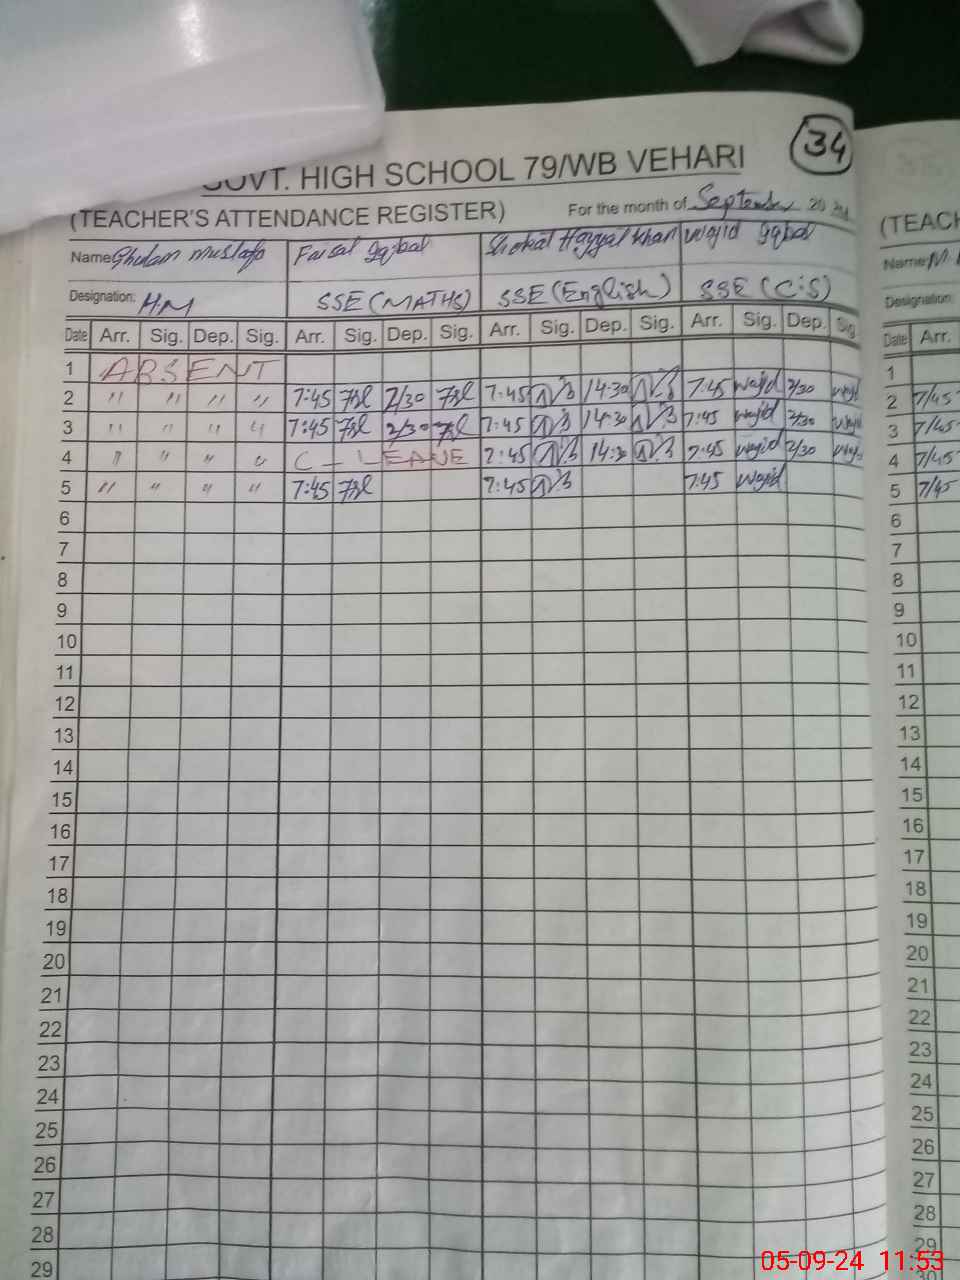 34
GOVT. HIGH SCHOOL 79/WB VEHARI
(TEACHER'S ATTENDANCE REGISTER) For the month of September 20
Name Ghulam Mustafa Faisal Iqbal Khan Wajid Iqbal
Designation: H.M SSE (MATHS) SSE (English) SSE (C.S)
Date Arr. Sig. Dep. Sig. Arr. Sig. Dep. Sig. Arr. Sig. Dep. Sig. Arr. Sig. Dep. Sig.
1 ABSENT
2 " " " " 7:45 2/30 7:45 14:30 7:45 Wajid 2/30 Wajid
3 " " " " 7:45 2/30 7:45 14:30 7:45 Wajid 2/30 Wajid
4 " " " " C-LEAVE 7:45 14:30 7:45 Wajid 2/30
5 " " " " 7:45 7:45 7:45 Wajid
6
7
8
9
10
11
12
13
14
15
16
17
18
19
20
21
22
23
24
25
26
27
28
29
(TEACH
Name M
Designation:
Date Arr.
1
2 7/45
3 7/45
4 7/45
5 7/45
6
7
8
9
10
11
12
13
14
15
16
17
18
19
20
21
22
23
24
25
26
27
28
29
30
05-09-24 11:53